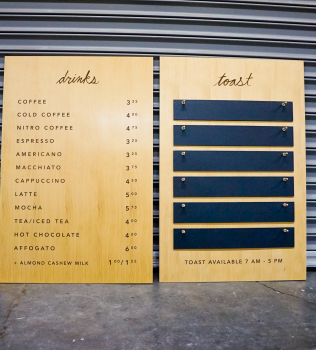 drinks
COFFEE 3
COLD COFFEE 4
NITRO COFFEE 4 75
ESPRESSO 3
AMERICANO 3
MACCHIATO 3 75
CAPPUCCINO 4
LATTE 5 00
MOCHA 5
TEA/ICED TEA 4 00
HOT CHOCOLATE 4
AFFOGATO 6 00
+ ALMOND CASHEW MILK 1 00/1
toast
TOAST AVAILABLE 7 AM - 3 PM